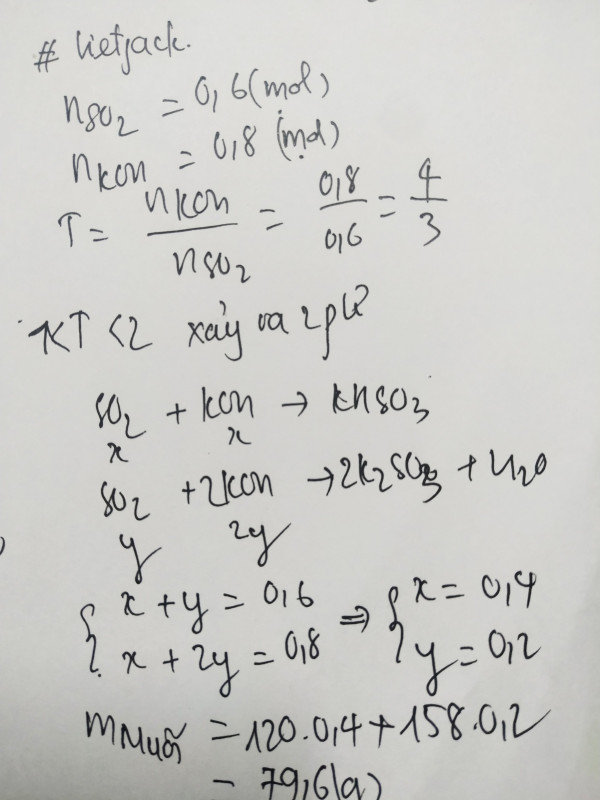 # Vietjack.
nSO2 = 0,6 (mol)
nKOH = 0,8 (mol)
T = nKOH / nSO2 = 0,8 / 0,6 = 4 / 3
1<T<2 xảy ra 2pứ
SO2 + KOH → KHSO3
x x
SO2 + 2KOH → 2K2SO3 + H2O
y 2y
{ x + y = 0,6 ⇒ { x = 0,4
{ x + 2y = 0,8 { y = 0,2
mMuối = 120.0,4 + 158.0,2
= 79,6(g)